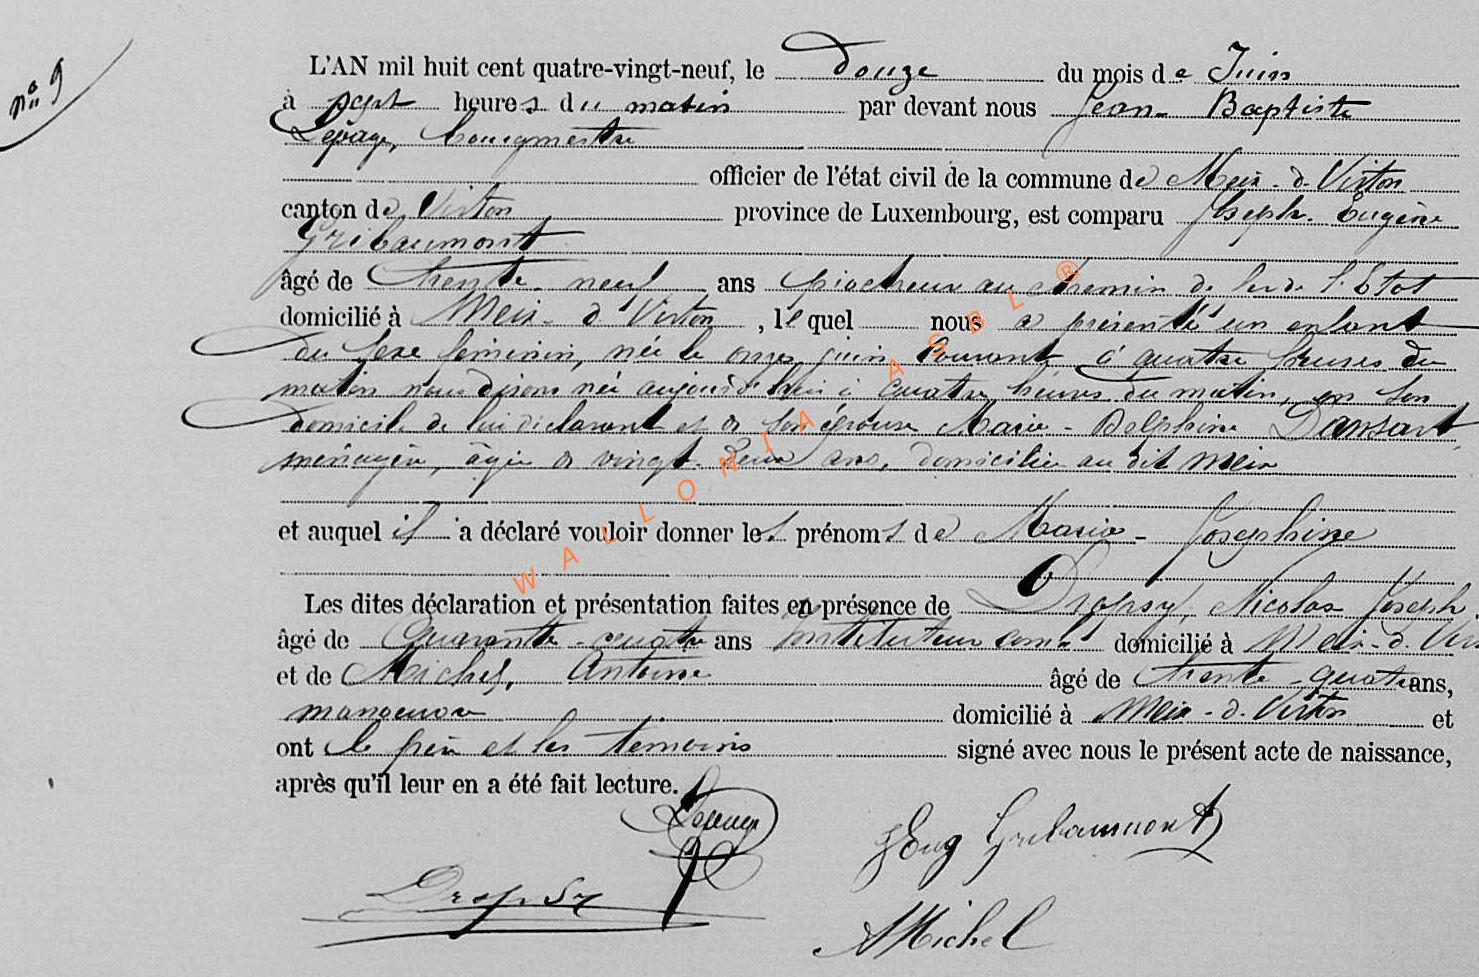 n° 9
L'AN mil huit cent quatre-vingt-neuf, le Douze du mois de Juin
à sept heures du matin par devant nous Jean-Baptiste
Lepage, bourgmestre
officier de l'état civil de la commune de Meix-d-Virton
canton de Virton province de Luxembourg, est comparu Joseph-Eugène
Gribaumont
âgé de trente-neuf ans piocheur au chemin de fer de l'Etat
domicilié à Meix-d'Virton, lequel nous a présenté un enfant
du sexe féminin, née le onze juin courant, à quatre heures du
matin nous disons née aujourd'hui à quatre heures du matin, en son
domicile de lui déclarant et de son épouse Marie-Delphine Dansart,
ménagère, âgée de vingt-deux ans, domiciliée au dit Meix
et auquel il a déclaré vouloir donner les prénoms de Marie-Joséphine
Les dites déclaration et présentation faites en présence de Dropsy, Nicolas Joseph
âgé de Quarante-quatre ans Instituteur comal domicilié à Meix-d-Vir
et de Michel, Antoine âgé de trente-quatre ans,
manoeuvre domicilié à Meix-d-Virton et
ont le père et les témoins signé avec nous le présent acte de naissance,
après qu'il leur en a été fait lecture.
Lepage
JEug Gribaumont
Dropsy
AMichel
WALLONIA ASBL ®